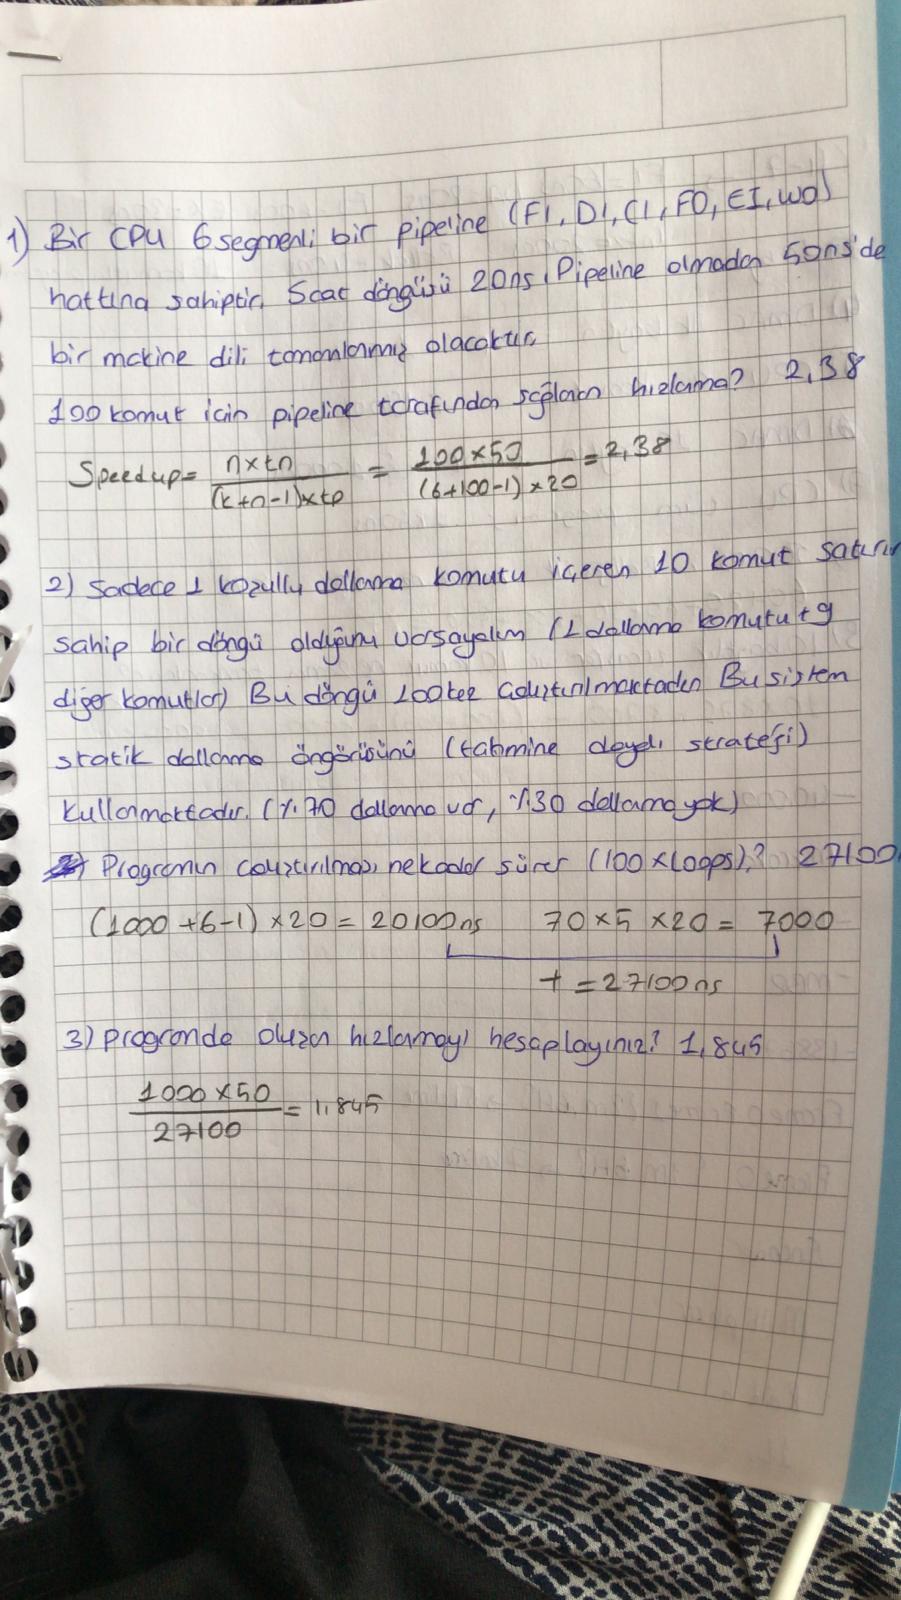 1) Bir CPU 6 segmenli bir pipeline (FI, DI, CI, FO, EI, WO)
hattına sahiptir. Saat döngüsü 20ns, Pipeline olmadan 50ns'de
bir makine dili tamamlanmış olacaktır.
100 komut için pipeline tarafından sağlanan hızlama? 2,38
Speedup = n×tn / (k+n-1)×tp = 100×50 / (6+100-1)×20 = 2,38
2) Sadece 1 koşullu dallanma komutu içeren 10 komut satırın
sahip bir döngü olduğunu varsayalım (1 dallanma komutu + 9
diğer komutlar) Bu döngü 100 kez çalıştırılmaktadır Bu sistem
statik dallanma öngörüsünü (tahmine dayalı strateji)
kullanmaktadır. (%70 dallanma var, %30 dallanma yok)
Programın çalıştırılması nekadar sürer (100 × Loops)? 27100
(1000 +6-1) ×20 = 20100 ns 70×5 ×20 = 7000
t = 27100 ns
3) Programda oluşan hızlamayı hesaplayınız? 1,845
1000 ×50 / 27100 = 1,845